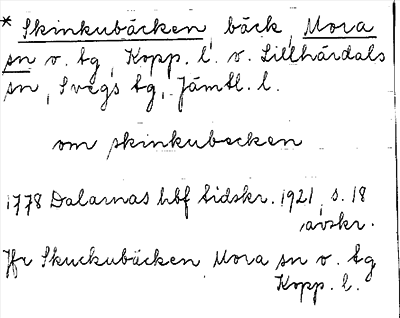 * Skinkubäcken, bäck, Mora
sn o. tg, Kopp. l. o. Lillhärdals
sn, Svegs tg, Jämtl. l.
om skinkubecken
1778 Dalarnas hbf tidskr. 1921, s. 18
avskr.
Jfr Skuckubäcken Mora sn o. tg
Kopp. l.